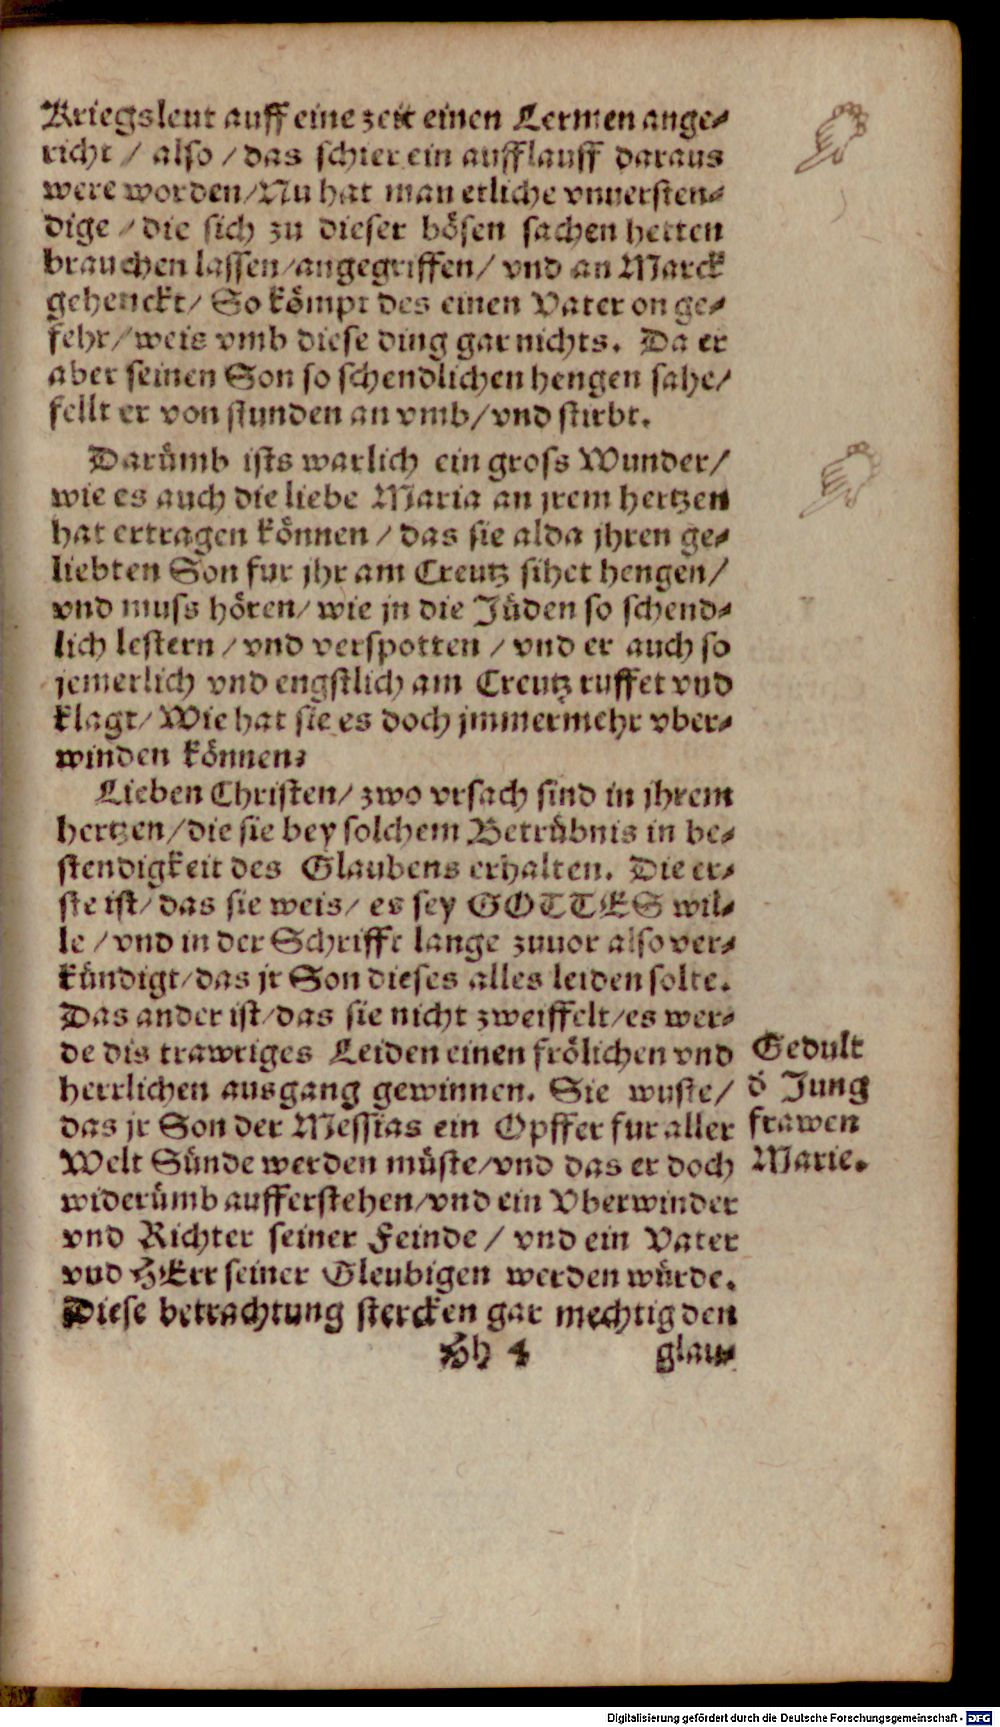 Kriegsleut auff eine zeit einen Lermen ange⸗
richt / also / das schier ein aufflauff daraus
were worden/Nu hat man etliche vnuersten⸗
dige / die sich zu dieser bösen sachen hetten
brauchen lassen/angegriffen/ vnd an Marck
gehenckt/ So kömpt des einen Vater on ge⸗
fehr/weis vmb diese ding gar nichts. Da er
aber seinen Son so schendlichen hengen sahe/
fellt er von stunden an vmb/vnd stirbt.
Darümb ists warlich ein gross Wunder/
wie es auch die liebe Maria an jrem hertzen
hat ertragen können / das sie alda jhren ge⸗
liebten Son fur jhr am Creutz sihet hengen/
vnd muss hören/ wie jn die Jüden so schend⸗
lich lestern / vnd verspotten / vnd er auch so
jemerlich vnd engstlich am Creutz ruffet vnd
klagt/ Wie hat sie es doch jmmermehr vber⸗
winden können?
Lieben Christen/ zwo vrsach sind in jhrem
hertzen/die sie bey solchem Betrübnis in be⸗
stendigkeit des Glaubens erhalten. Die er⸗
ste ist/das sie weis/ es sey GOTTES wil⸗
le / vnd in der Schrifft lange zuuor also ver⸗
kündigt/das jr Son dieses alles leiden solte.
Das ander ist/das sie nicht zweiffelt/es wer⸗
de dis trawriges Leiden einen frölichen vnd
herrlichen ausgang gewinnen. Sie wuste/
das jr Son der Messias ein Opffer fur aller
Welt Sünde werden müste/vnd das er doch
widerümb aufferstehen/vnd ein Vberwinder
vnd Richter seiner Feinde / vnd ein Vater
vnd HErr seiner Gleubigen werden würde.
Diese betrachtung stercken gar mechtig den
Hh 4 glau⸗
Gedult
d̕ Jung
frawen
Marie.
Digitalisierung gefördert durch die Deutsche Forschungsgemeinschaft - DFG